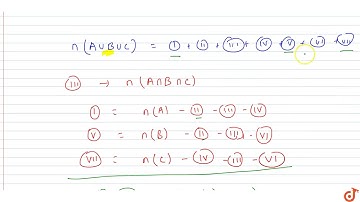 n(A∪B∪C) = I + II + III + IV + V + VI + VII
III → n(A∩B∩C)
I = n(A) - II - III - IV
V = n(B) - II - III - VI
VII = n(C) - IV - III - VI